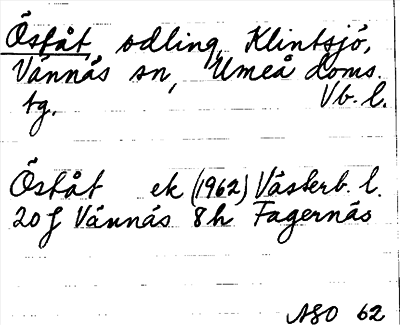 Öståt, odling, Klintsjö,
Vännäs sn, Umeå doms.
tg. Vb. l.
Öståt ek (1962) Västerb. l.
20 J Vännäs 8h Fagernäs
ASO 62